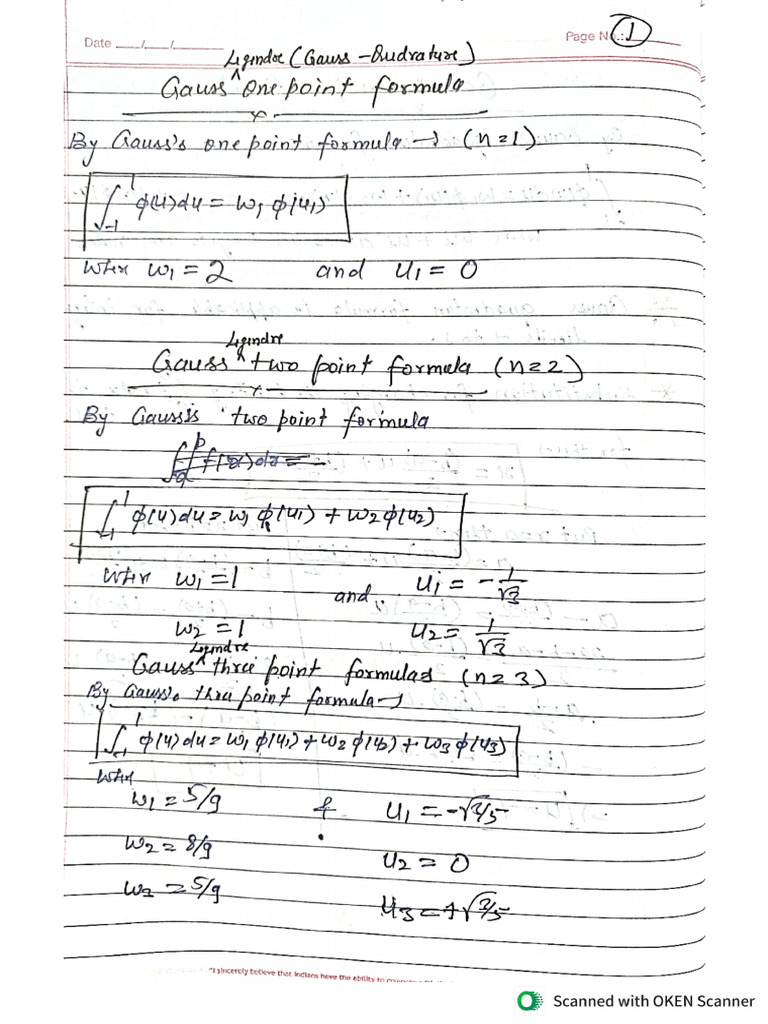 Date ___/___/___ Page No.: 1
Legendre (Gauss-Qudrature)
Gauss ^ One point formula
By Gauss's one point formula → (n=1)
∫₋₁¹ φ(u)du = w₁ φ(u₁)
when w₁ = 2 and u₁ = 0
Legendre
Gauss ^ two point formula (n=2)
By Gauss's two point formula
∫₋₁¹ φ(u)du = w₁ φ(u₁) + w₂ φ(u₂)
when w₁ = 1 and u₁ = -1/√3
w₂ = 1 u₂ = 1/√3
Legendre
Gauss ^ three point formulas (n=3)
By Gauss's three point formula →
∫₋₁¹ φ(u)du = w₁ φ(u₁) + w₂ φ(u₂) + w₃ φ(u₃)
when
w₁ = 5/9 & u₁ = -√3/5
w₂ = 8/9 u₂ = 0
w₃ = 5/9 u₃ = +√3/5
"I sincerely believe that Indians have the ability to
Scanned with OKEN Scanner